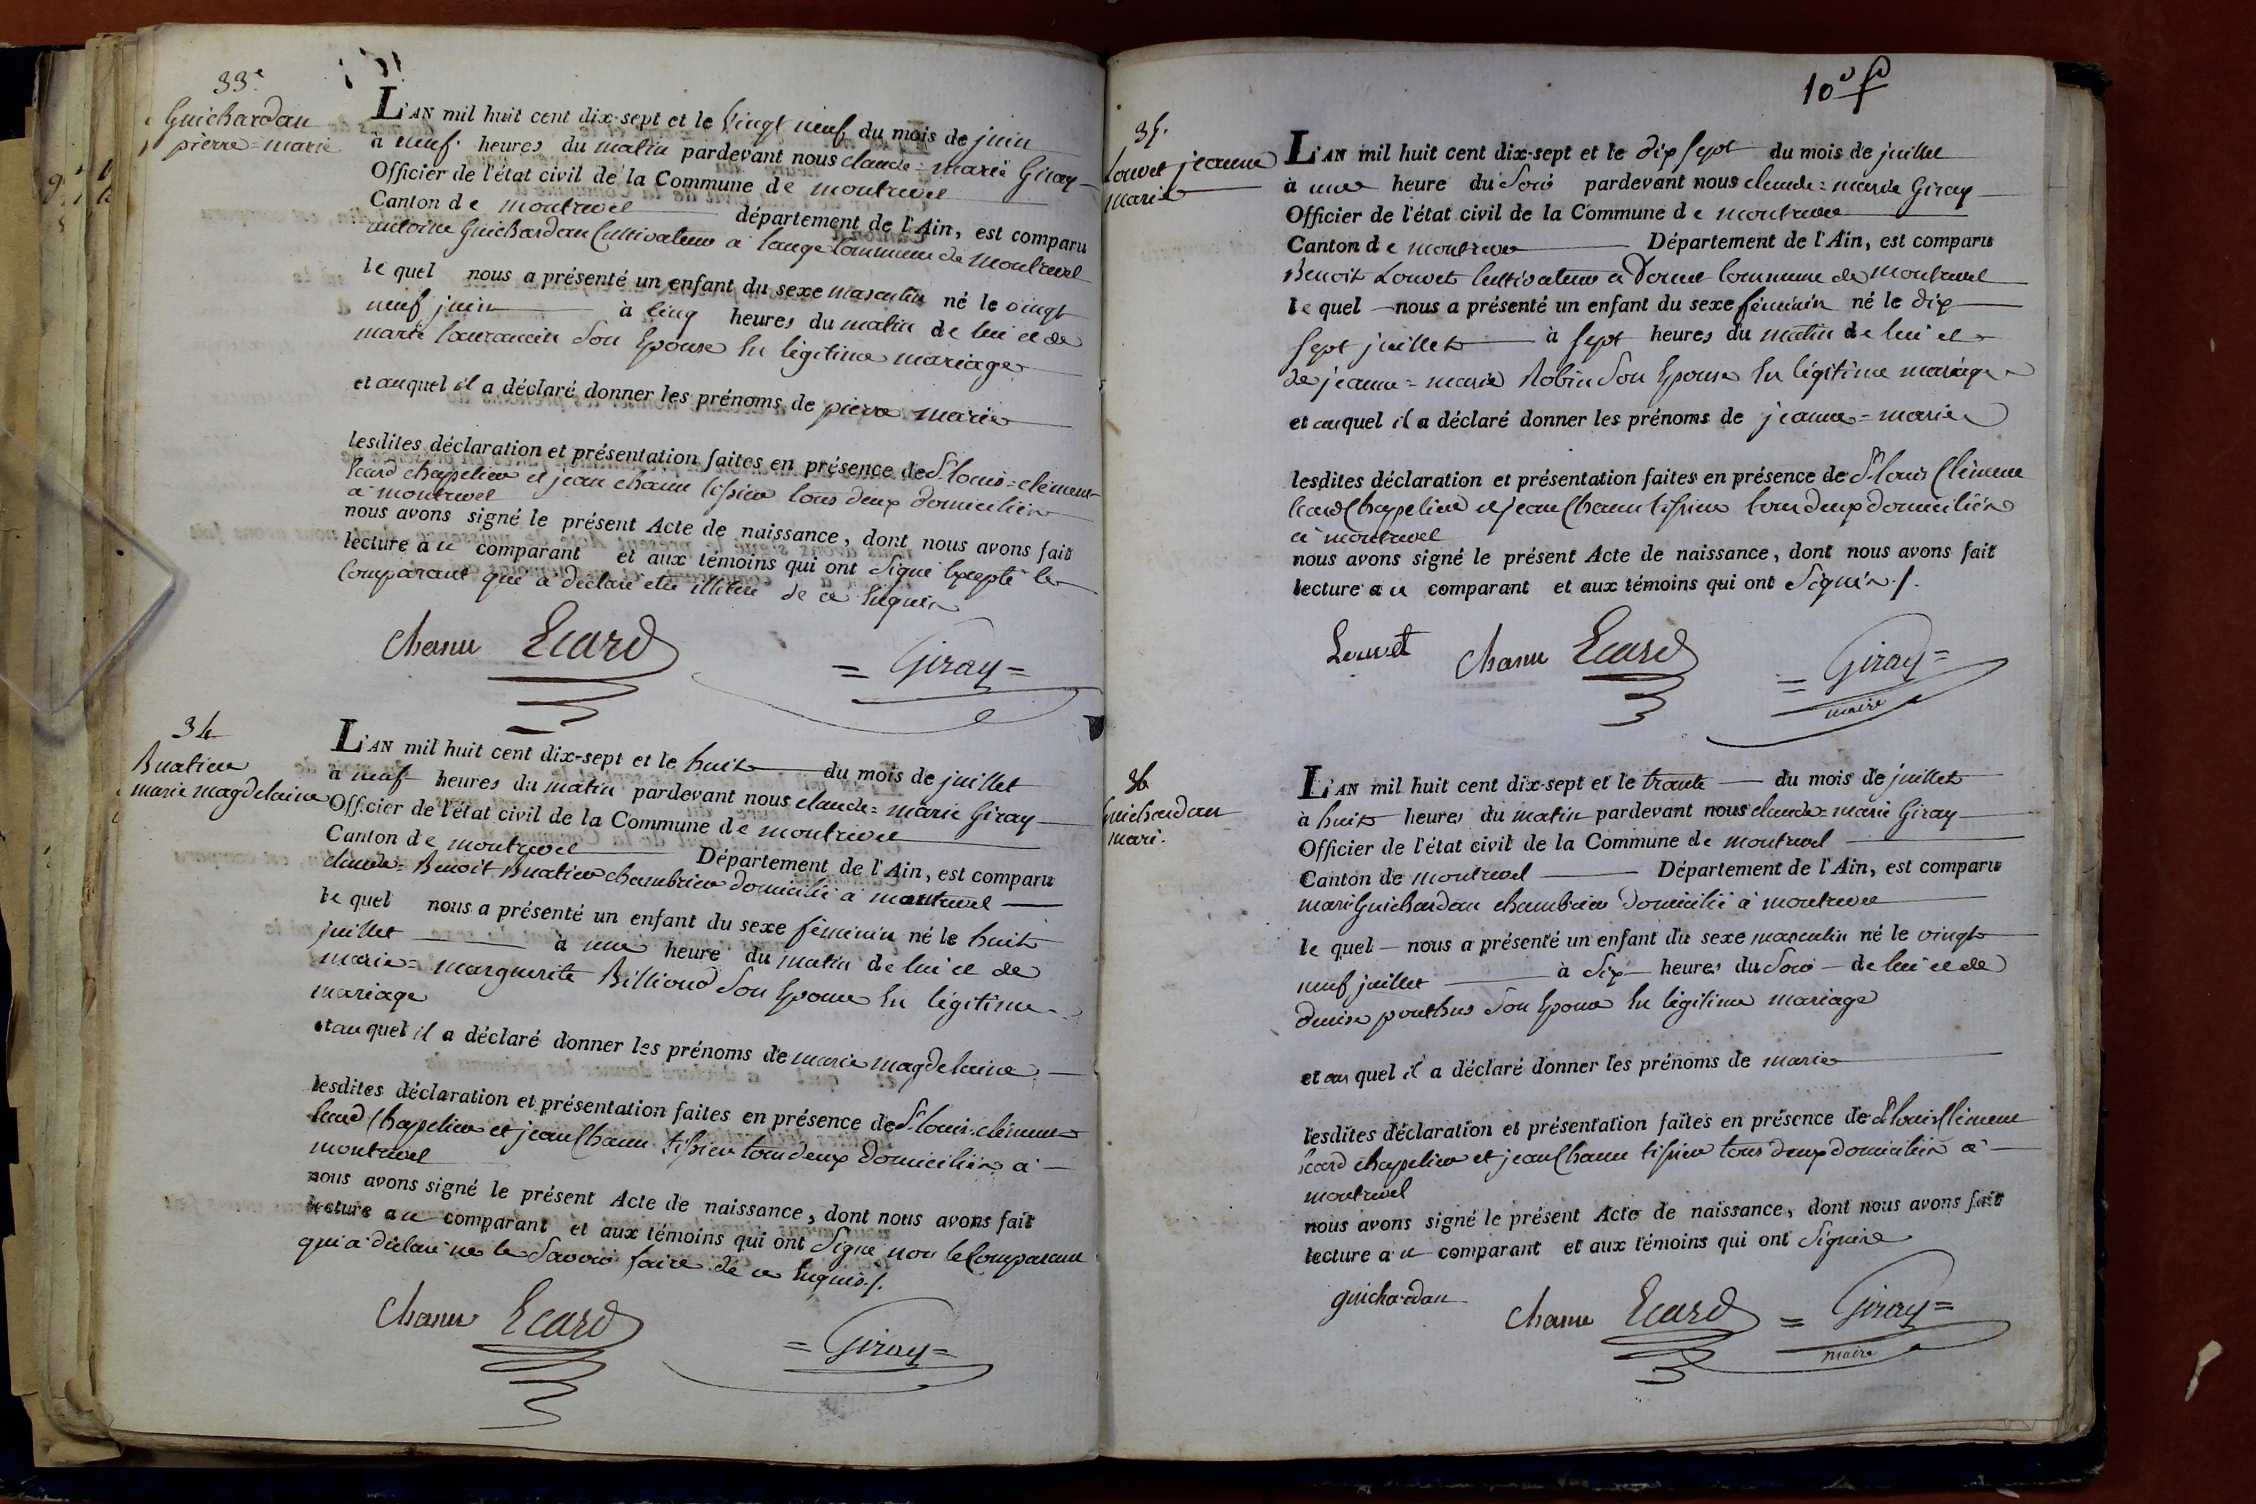 33e
Guichardan
pierre=marie
L'AN mil huit cent dix-sept et le vingt neuf du mois de juin
à neuf heures du matin pardevant nous claude=marie Giray
Officier de l'état civil de la Commune de montrevel
Canton de montrevel département de l'Ain, est comparu
antoine Guichardan Cultivateur à Commune de Montrevel
le quel nous a présenté un enfant du sexe masculin né le vingt
neuf juin à Cinq heures du matin de lui et de
marie son Epouse En légitime mariage
et auquel il a déclaré donner les prénoms de pierre marie
lesdites déclaration et présentation faites en présence de Sr. louis=clément
Ecard chapelier et jean chanu tissier tous deux domiciliés
à montrevel
nous avons signé le présent Acte de naissance, dont nous avons fait
lecture au comparant et aux témoins qui ont signé Excepté le
Comparant qui a déclaré être illitéré de ce Enquis
Chanu Ecard =Giray=
34
Buatier
marie magdelaine
L'AN mil huit cent dix-sept et le huit du mois de juillet
à neuf heures du matin pardevant nous claude=marie Giray
Officier de l'état civil de la Commune de montrevel
Canton de montrevel Département de l'Ain, est comparu
claude=Benoit Buatier chambrier domicilié à montrevel
le quel nous a présenté un enfant du sexe féminin né le huit
juillet à une heure du matin de lui et de
marie=marguerite Billioud son Epouse En légitime
mariage
et au quel il a déclaré donner les prénoms de marie magdelaine
lesdites déclaration et présentation faites en présence de Sr. louis=clément
Ecard Chapelier et jean Chanu tissier tous deux domiciliés à
montrevel
nous avons signé le présent Acte de naissance, dont nous avons fait
lecture au comparant et aux témoins qui ont signé non le Comparant
qui a déclaré ne le savoir faire de ce Enquis./.
Chanu Ecard =Giray=
10e f
35.
Louvet jeanne
marie
L'AN mil huit cent dix-sept et le dix sept du mois de juillet
à une heure du soir pardevant nous claude=marie Giray
Officier de l'état civil de la Commune de montrevel
Canton de montrevel Département de l'Ain, est comparu
Benoit Louvet Cultivateur à Commune de montrevel
le quel nous a présenté un enfant du sexe féminin né le dix
sept juillet à sept heures du matin de lui et
de jeanne=marie Robin son Epouse En légitime mariage
et auquel il a déclaré donner les prénoms de jeanne=marie
lesdites déclaration et présentation faites en présence de Sr. louis Clément
Ecard Chapelier et jean Chanu tissier tous deux domiciliés
à montrevel
nous avons signé le présent Acte de naissance, dont nous avons fait
lecture au comparant et aux témoins qui ont signés./.
Louvet Chanu Ecard =Giray=
maire
36
Guichardan
marie.
L'AN mil huit cent dix-sept et le trante du mois de juillet
à huit heures du matin pardevant nous claude=marie Giray
Officier de l'état civil de la Commune de montrevel
Canton de montrevel Département de l'Ain, est comparu
marie Guichardan chambrier domicilié à montrevel
le quel nous a présenté un enfant du sexe masculin né le vingt
neuf juillet à six heures du soir de lui et de
denise pouthus son Epouse En légitime mariage
et au quel il a déclaré donner les prénoms de marie
lesdites déclaration et présentation faites en présence de Sr louis Clément
Ecard chapelier et jean Chanu tissier tous deux domiciliés à
montrevel
nous avons signé le présent Acte de naissance, dont nous avons fait
lecture au comparant et aux témoins qui ont signés
guichardan Chanu Ecard =Giray=
maire